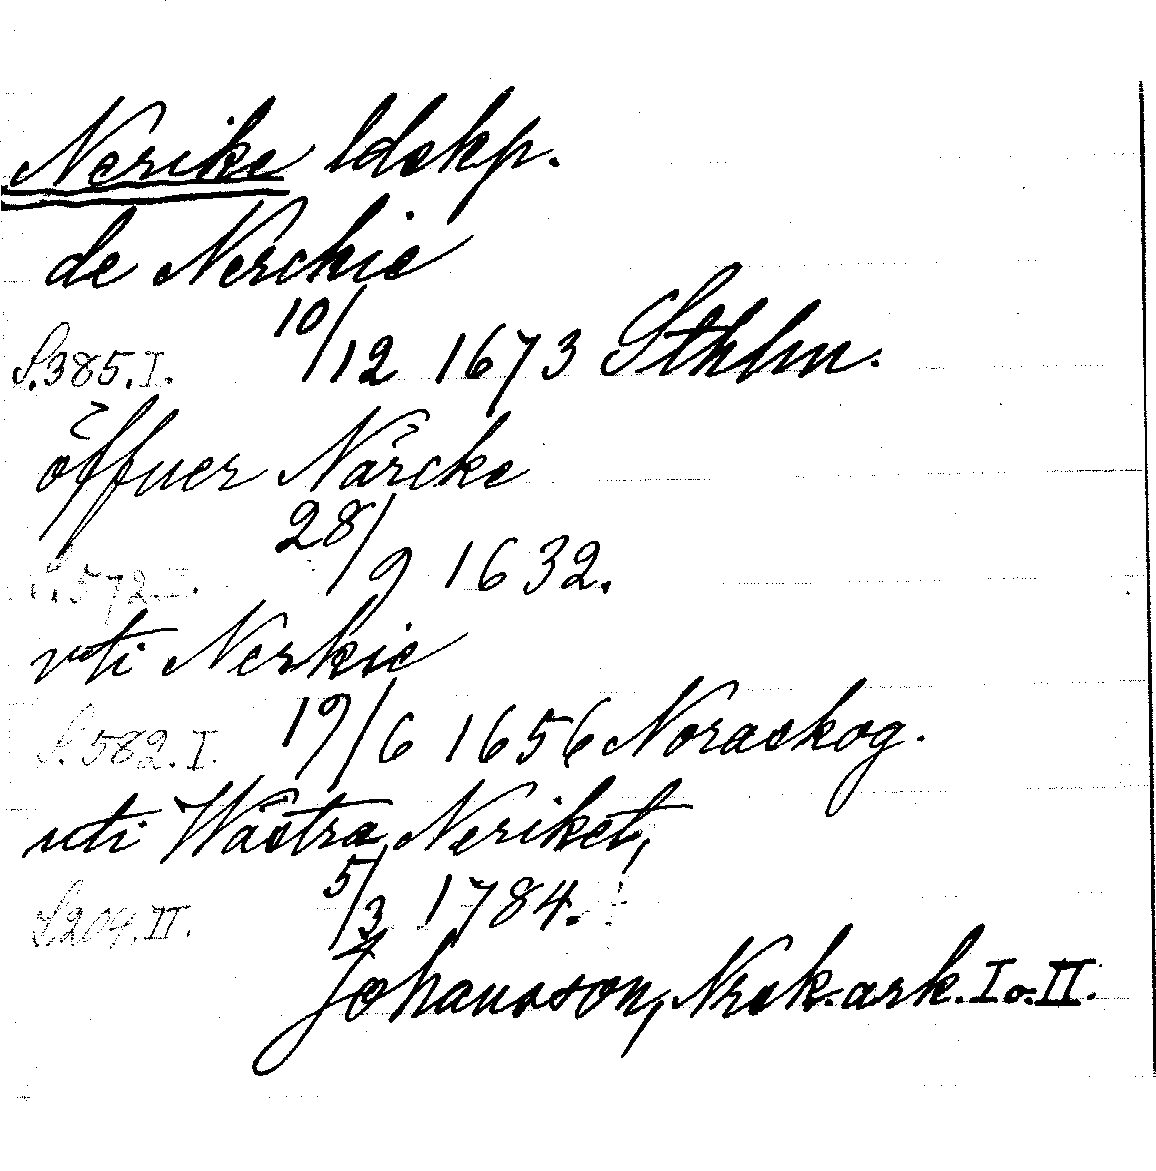 Nerike ldskp.
de Nerchie
S.385.I. 10/12 1673 Sthlm.
öffuer Närcke
S.572.II. 28/9 1632.
vti Nerkie
S.582.I. 19/6 1656 Noraskog.
uti Wästra Neriket,
S.209.III. 5/3 1784.
Johansson, Nrsk. ark. I o. II.